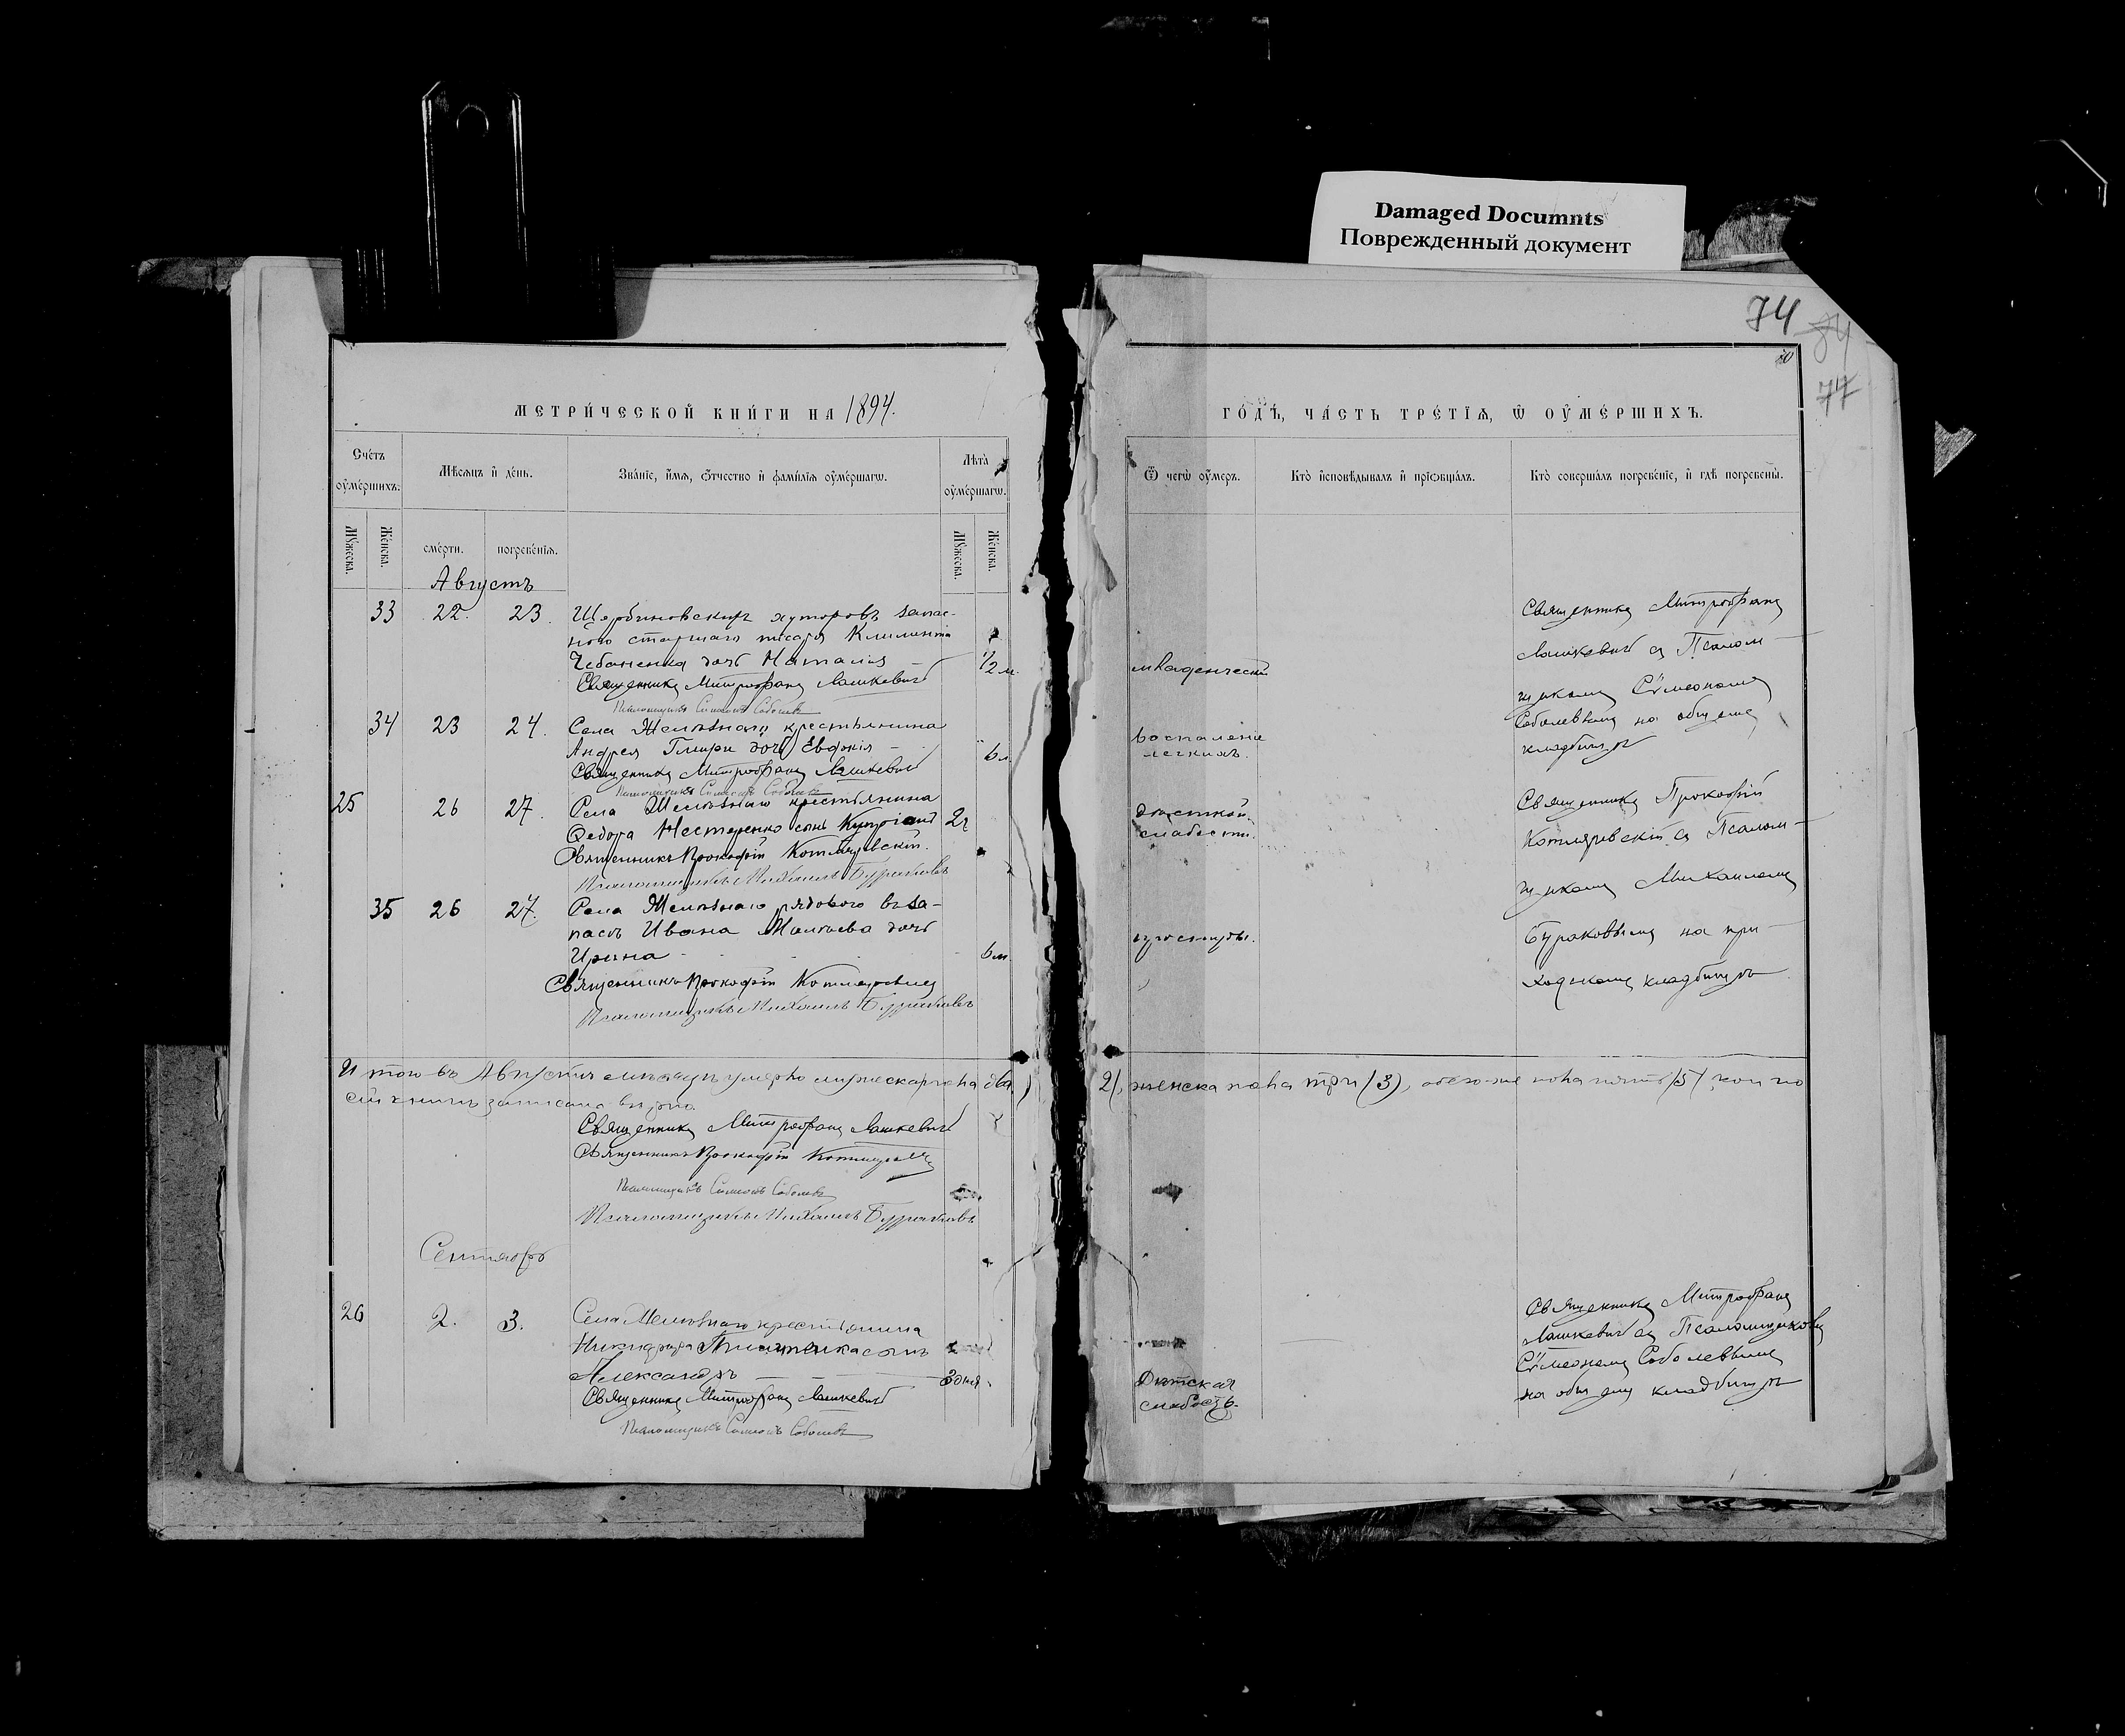 Damaged Documnts
Поврежденный документ
74
84
77
80
МЕТРИ́ЧЕСКОЙ КНИ́ГИ НА 1894.
ГО́ДЪ, ЧА́СТЬ ТРЕ́ТІѦ, Ѡ҆ ОУ҆МЕ́РШИХЪ.
Сче́тъ оу҆ме́ршихъ.
Мѣ́сѧцъ и҆ де́нь.
Зва́нїе, и҆́мѧ, ѻ҆́тчество и҆ фамі́лїѧ оу҆ме́ршагѡ.
Лѣ́та оу҆ме́ршагѡ.
Ѿ чегѡ̀ оу҆́меръ.
Кто̀ и҆сповѣ́дывалъ и҆ прїѡбща́лъ.
Кто̀ соверша́лъ погребе́нїе, и҆ гдѣ̀ погребены̀.
Му́жеска.
Же́нска.
сме́рти.
погребе́нїѧ.
Му́жеска.
Же́нска.
Августъ
33 22. 23. Щербиновскихъ хуторовъ запас-
ного старшаго писаря Климента
Чебаненка дочь Наталия 1/2 м.
Священникъ Митрофанъ Лашкевичъ
Псаломщикъ Симеонъ Соболевъ
младенческой
Священникъ Митрофанъ
Лашкевичъ съ Псалом-
щикомъ Сѵмеономъ
Соболевымъ на общемъ
кладбищѣ
34 23 24. Села Желѣзнаго крестьянина
Андрея Гмыри дочь Евдокія 6 м
Священникъ Митрофанъ Лашкевичъ
Псаломщикъ Симеонъ Соболевъ
воспаленіе
легкихъ.
25 26 27. Села Желѣзнаго крестьянина
Ѳедора Нестеренко сынъ 2г
Священникъ Прокофій Котляревскій.
Псаломщикъ Михаилъ Бураковъ
дѣтской
слабости.
Священникъ Прокофій
Котляревскій съ Псалом-
щикомъ Михаиломъ
Бураковымъ на при-
ходскомъ кладбищѣ
35 26 27. Села Желѣзнаго рядового въ за-
пасѣ Ивана дочь
Ирина 6м
Священникъ Прокофій Котляревскій
Псаломщикъ Михаилъ Бураковъ
простуды.
Итого въ Августѣ мѣсяцѣ умерло мужеска пола два (2), женска пола три (3), обоего же пола пять (5), кои по
сей книгѣ записаны вѣрно
Священникъ Митрофанъ Лашкевичъ
Священникъ Прокофій Котляревскій
Псаломщикъ Симеонъ Соболевъ
Псаломщикъ Михаилъ Бураковъ
Сентябрь
26 2. 3. Села Желѣзнаго крестьянина
Никифора сынъ
Александръ 3 дня
Священникъ Митрофанъ Лашкевичъ
Псаломщикъ Симеонъ Соболевъ
Дѣтская
слабость.
Священникъ Митрофанъ
Лашкевичъ съ Псаломщикомъ
Сѵмеономъ Соболевымъ
на общемъ кладбищѣ